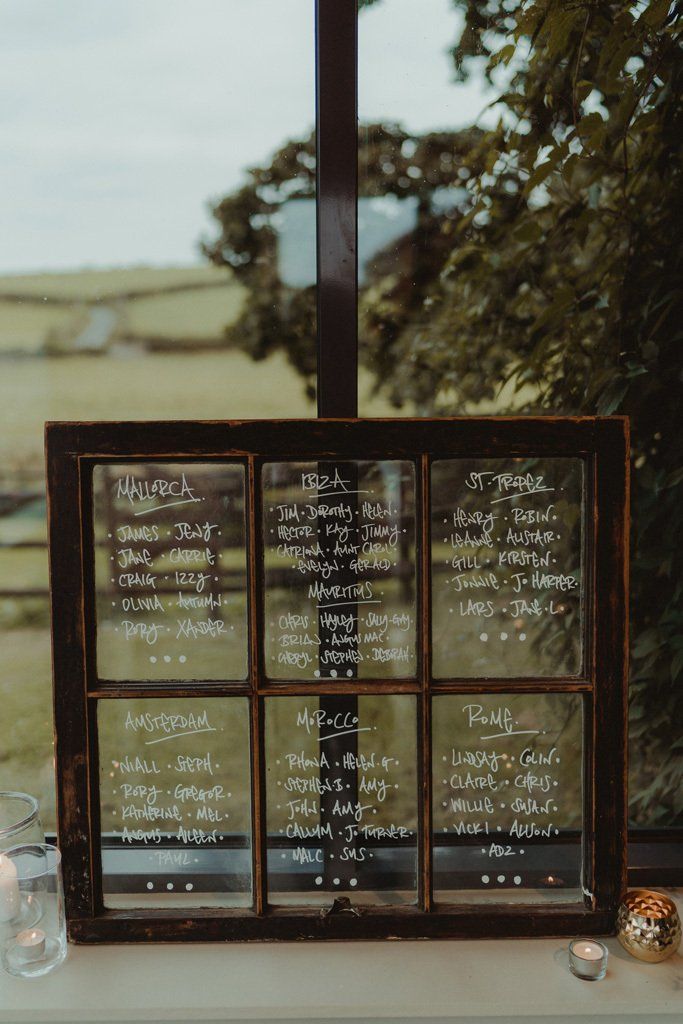 MALLORCA
JAMES · JENY ·
JANE · CARRIE ·
CRAIG · IZZY ·
OLIVIA · AUTUMN ·
RORY · XANDER ·
IBIZA
JIM · DOROTHY · HELEN ·
HECTOR · KAY · JIMMY ·
CATRIONA · AUNT CAROL ·
· EVELYN · GERALD ·
MAURITIUS
CHRIS · HAYLEY · SALLY-GAY ·
BRIAN · ANGUS MAC ·
CHERYL · STEPHEN · DEBORAH ·
ST. TROPEZ
· HENRY · ROBIN ·
· LEANNE · ALISTAIR ·
· GILL · KIRSTEN ·
· JONNIE · JO HARPER ·
· LARS · JANE L ·
AMSTERDAM
· NIALL · STEPH ·
· RORY · GREGOR ·
· KATHERINE · MEL ·
· ANGUS · AILEEN ·
· PAUL ·
MOROCCO
· RHONA · HELEN G ·
· STEPHEN B · AMY ·
· JOHN · AMY ·
· CALUM · J· TURNER ·
· MALC · SUS ·
ROME
· LINDSAY · COLIN ·
· CLAIRE · CHRIS ·
· WILLIE · SUSAN ·
· VICKI · ALISON ·
· ADZ ·